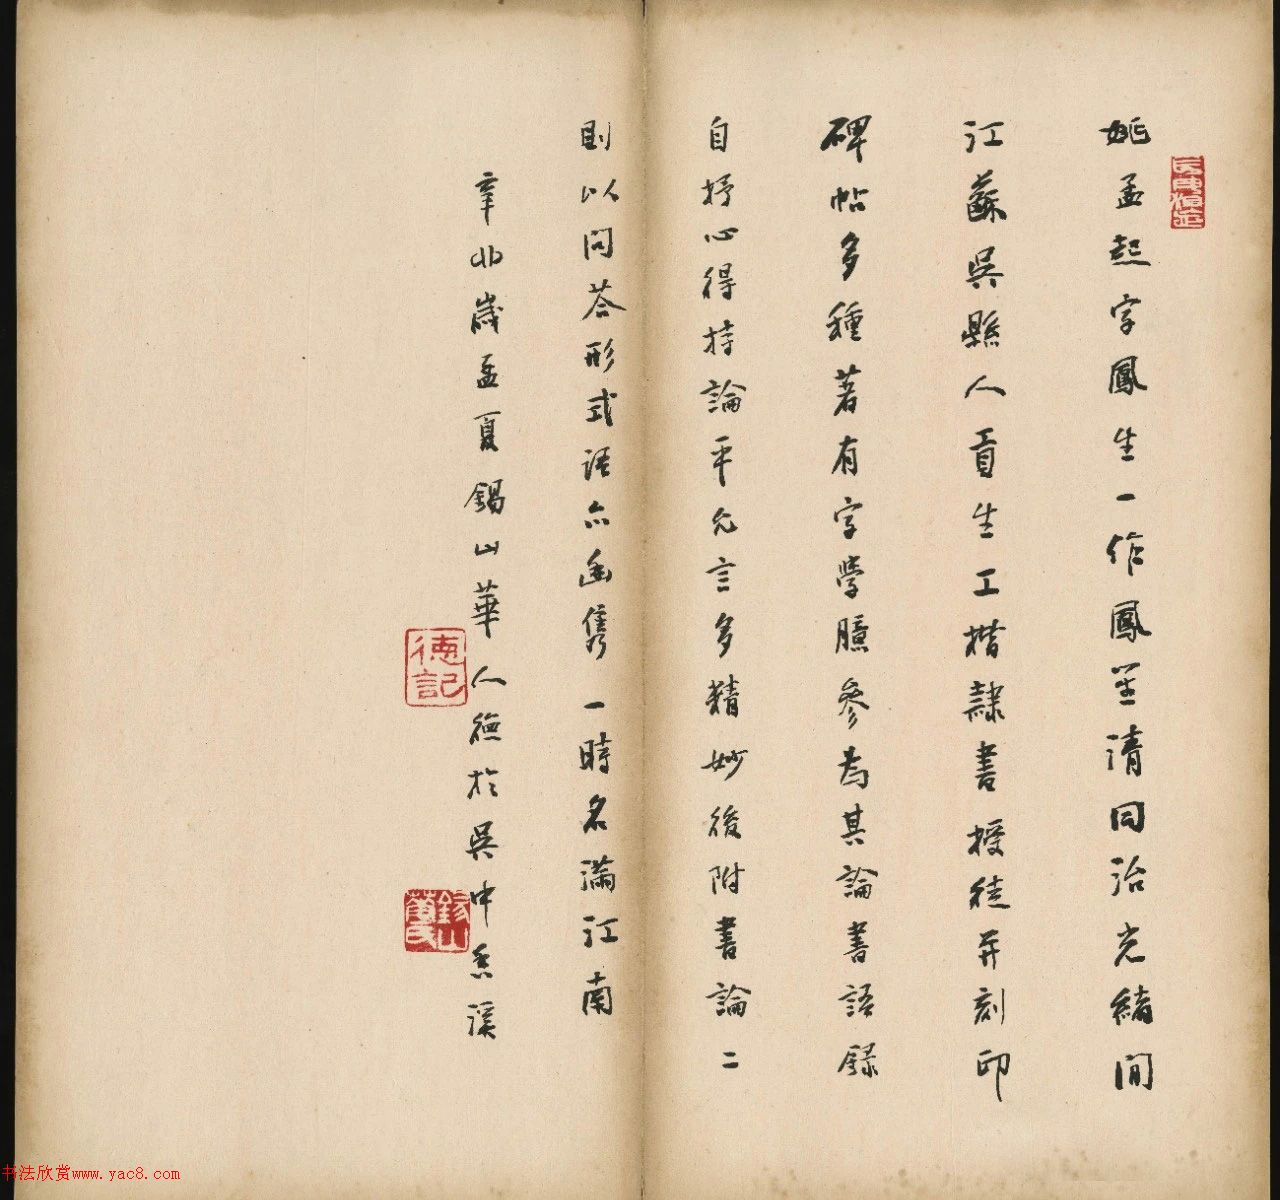 姚孟起字鳳生一作鳳笙清同治光緒間
江蘇吳縣人貢生工楷隸書授徒并刻印
碑帖多種著有字學臆參為其論書語錄
自抒心得持論平允言多精妙後附書論二
則以問荅形式語亦幽雋一時名滿江南
辛丑歲孟夏錫山華人德於吳中香溪
德記
錫山華氏
书法欣赏www.yac8.com